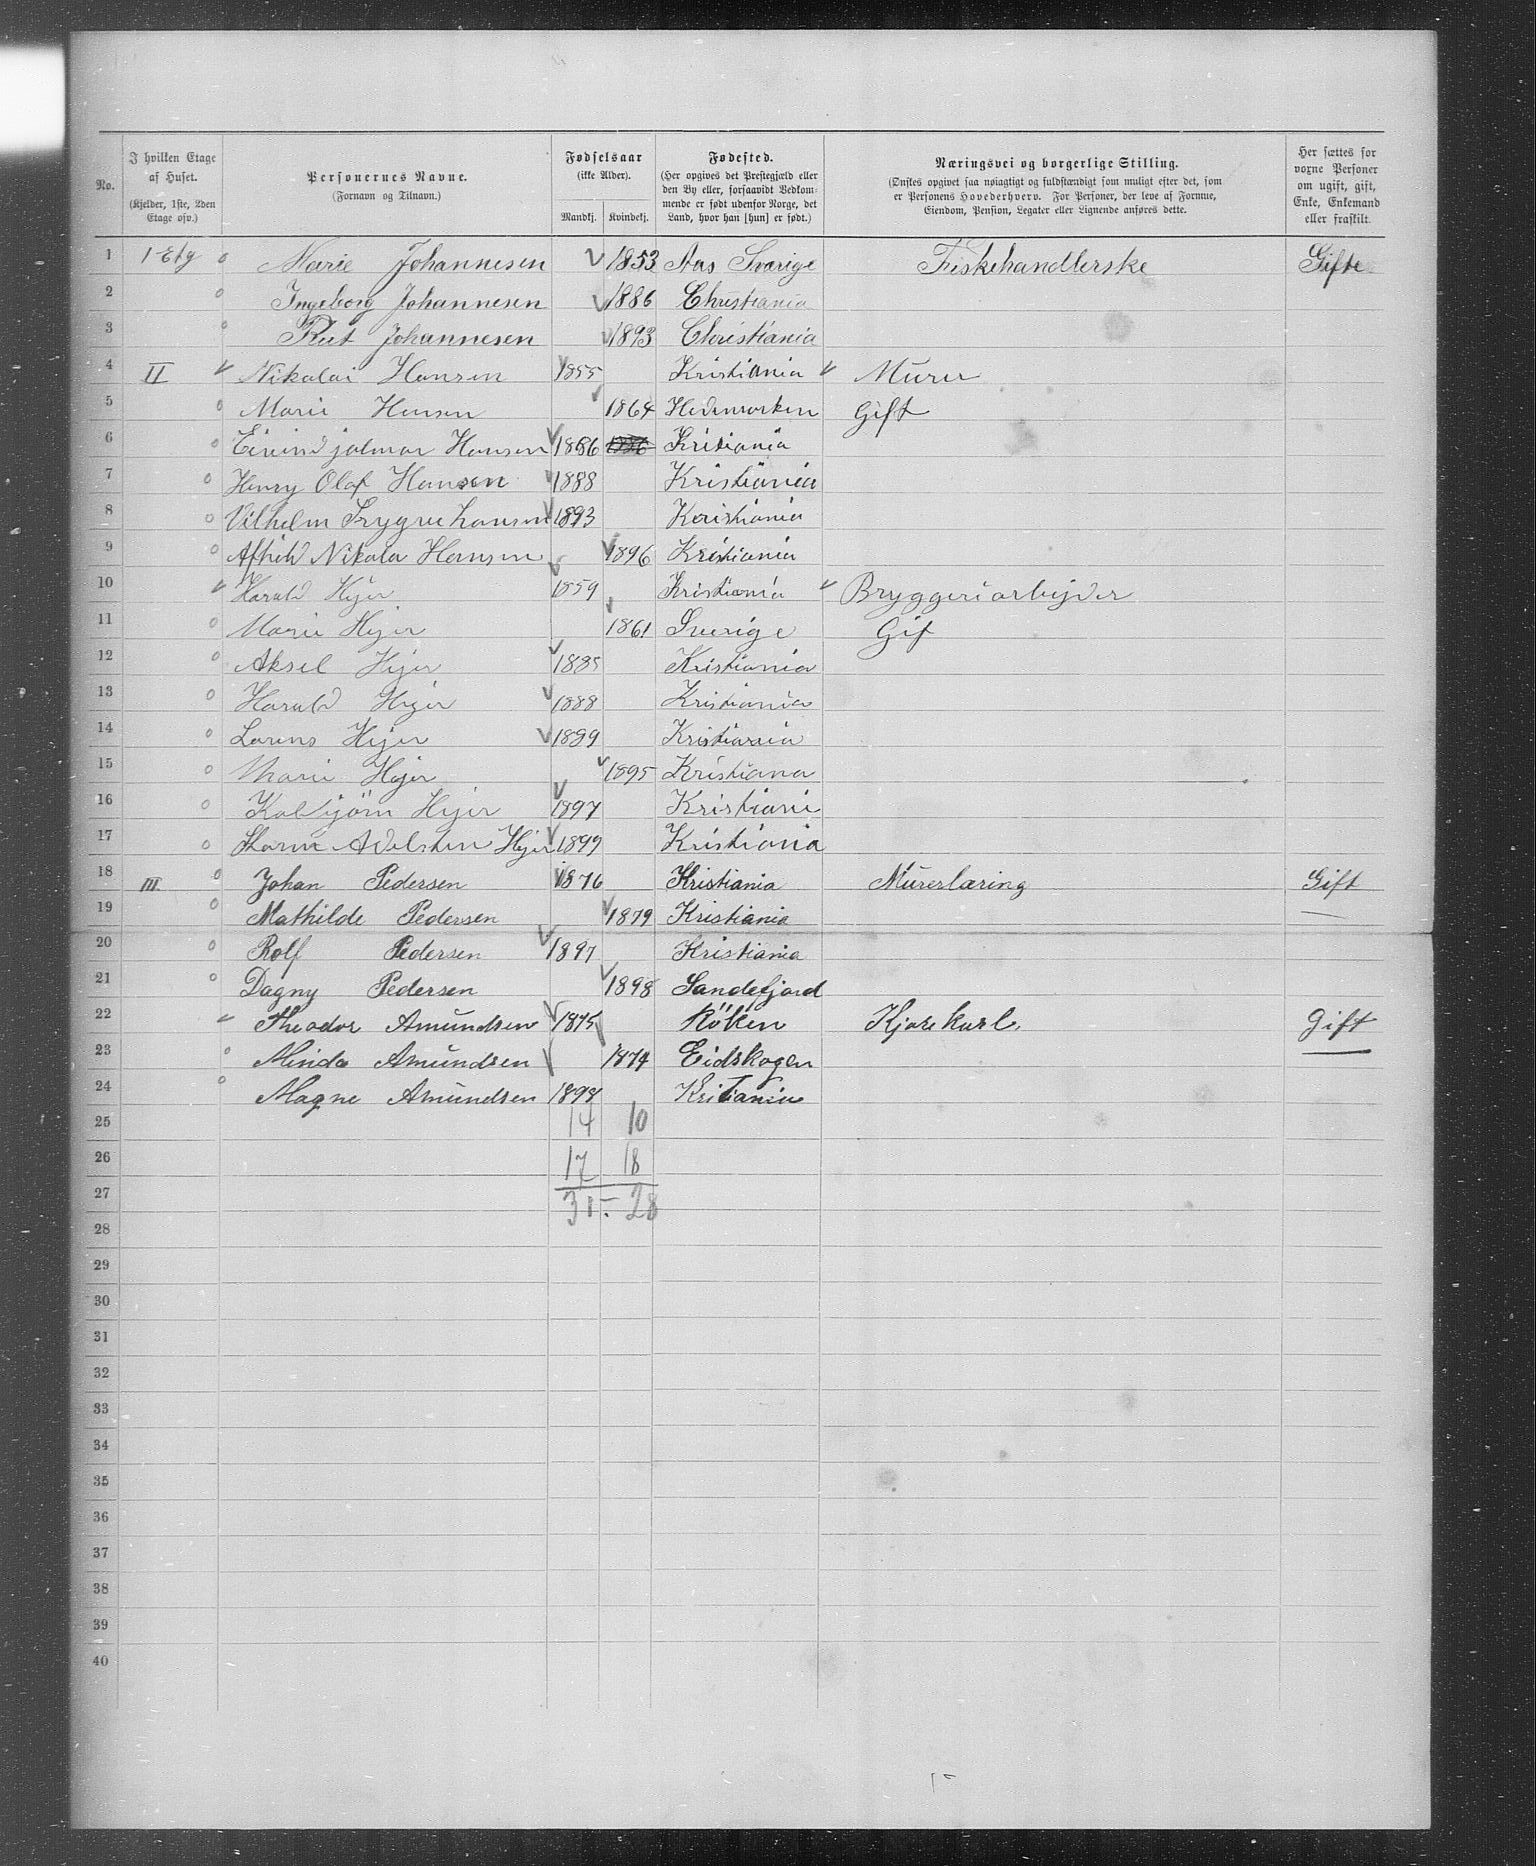 No. I hvilken Etage af Huset. (Kjelder, 1ste, 2den Etage osv.) Personernes Navne. (Fornavn og Tilnavn.) Fødselsaar (ikke Alder). Mandkj. Kvindekj. Fødested. (Her opgives det Prestegjæld eller den By eller, forsaavidt Vedkommende er født udenfor Norge, det Land, hvor han [hun] er født.) Næringsvei og borgerlige Stilling. (Ønskes opgivet saa nøiagtigt og fuldstændigt som muligt efter det, som er Personens Hovederhverv. For Personer, der leve af Formue, Eiendom, Pension, Legater eller Lignende anføres dette. Her sættes for voxne Personer om ugift, gift, Enke, Enkemand eller fraskilt.
1 1 Etg Marie Johannesen 1853 Aas Svarige Fiskehandlerske Gifte
2 Ingeborg Johannesen 1886 Christiania
3 Rut Johannesen 1893 Christiania
4 II Nikolai Hansen 1855 Kristiania Murer
5 Marie Hansen 1864 Hedemarken Gift
6 Eivind jalmar Hansen 1886 Kritiania
7 Henry Olaf Hansen 1888 Kristiania
8 Vilhelm Trygve hansen 1893 Kristiania
9 Nikola Hansen 1896 Kristiania
10 Harald Hejer 1859 Kristiania Bryggeriarbejder
11 Marie Hejer 1861 Sverige Gif
12 Aksel Hejer 1885 Kristiania
13 Harald Hejer 1888 Kristiania
14 Lorens Hejer Kristiania
15 Marie Hejer 1895 Kristiana
16 Kolbjörn Hejer 1897 Kristiani
17 Adelsten Hejer 1899 Kristiania
18 III Johan Pedersen 1876 Kristiania Murerlæring Gift
19 Mathilde Pedersen 1879 Kristiania —
20 Rolf Pedersen 1897 Kristiania
21 Dagny Pedersen 1898 Sandefjord
22 Theodor Amundsen 1875 Röken Kjörekarl. Gift
23 Minda Amundsen 1874 Eidskogen —
24 Magne Amundsen 1898 Kritiania
25 14 10
26 17 18
27 31 - 28
28
29
30
31
32
33
34
35
36
37
38
39
40